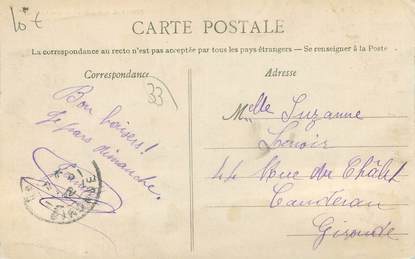 10 €
CARTE POSTALE
La correspondance au recto n'est pas acceptée par tous les pays étrangers — Se renseigner à la Poste
Correspondance
Adresse
33
Bon baisers!
Je pars dimanche.
Melle Suzanne
Lenoir
44 Rue du Châlet
Caudéran
Gironde